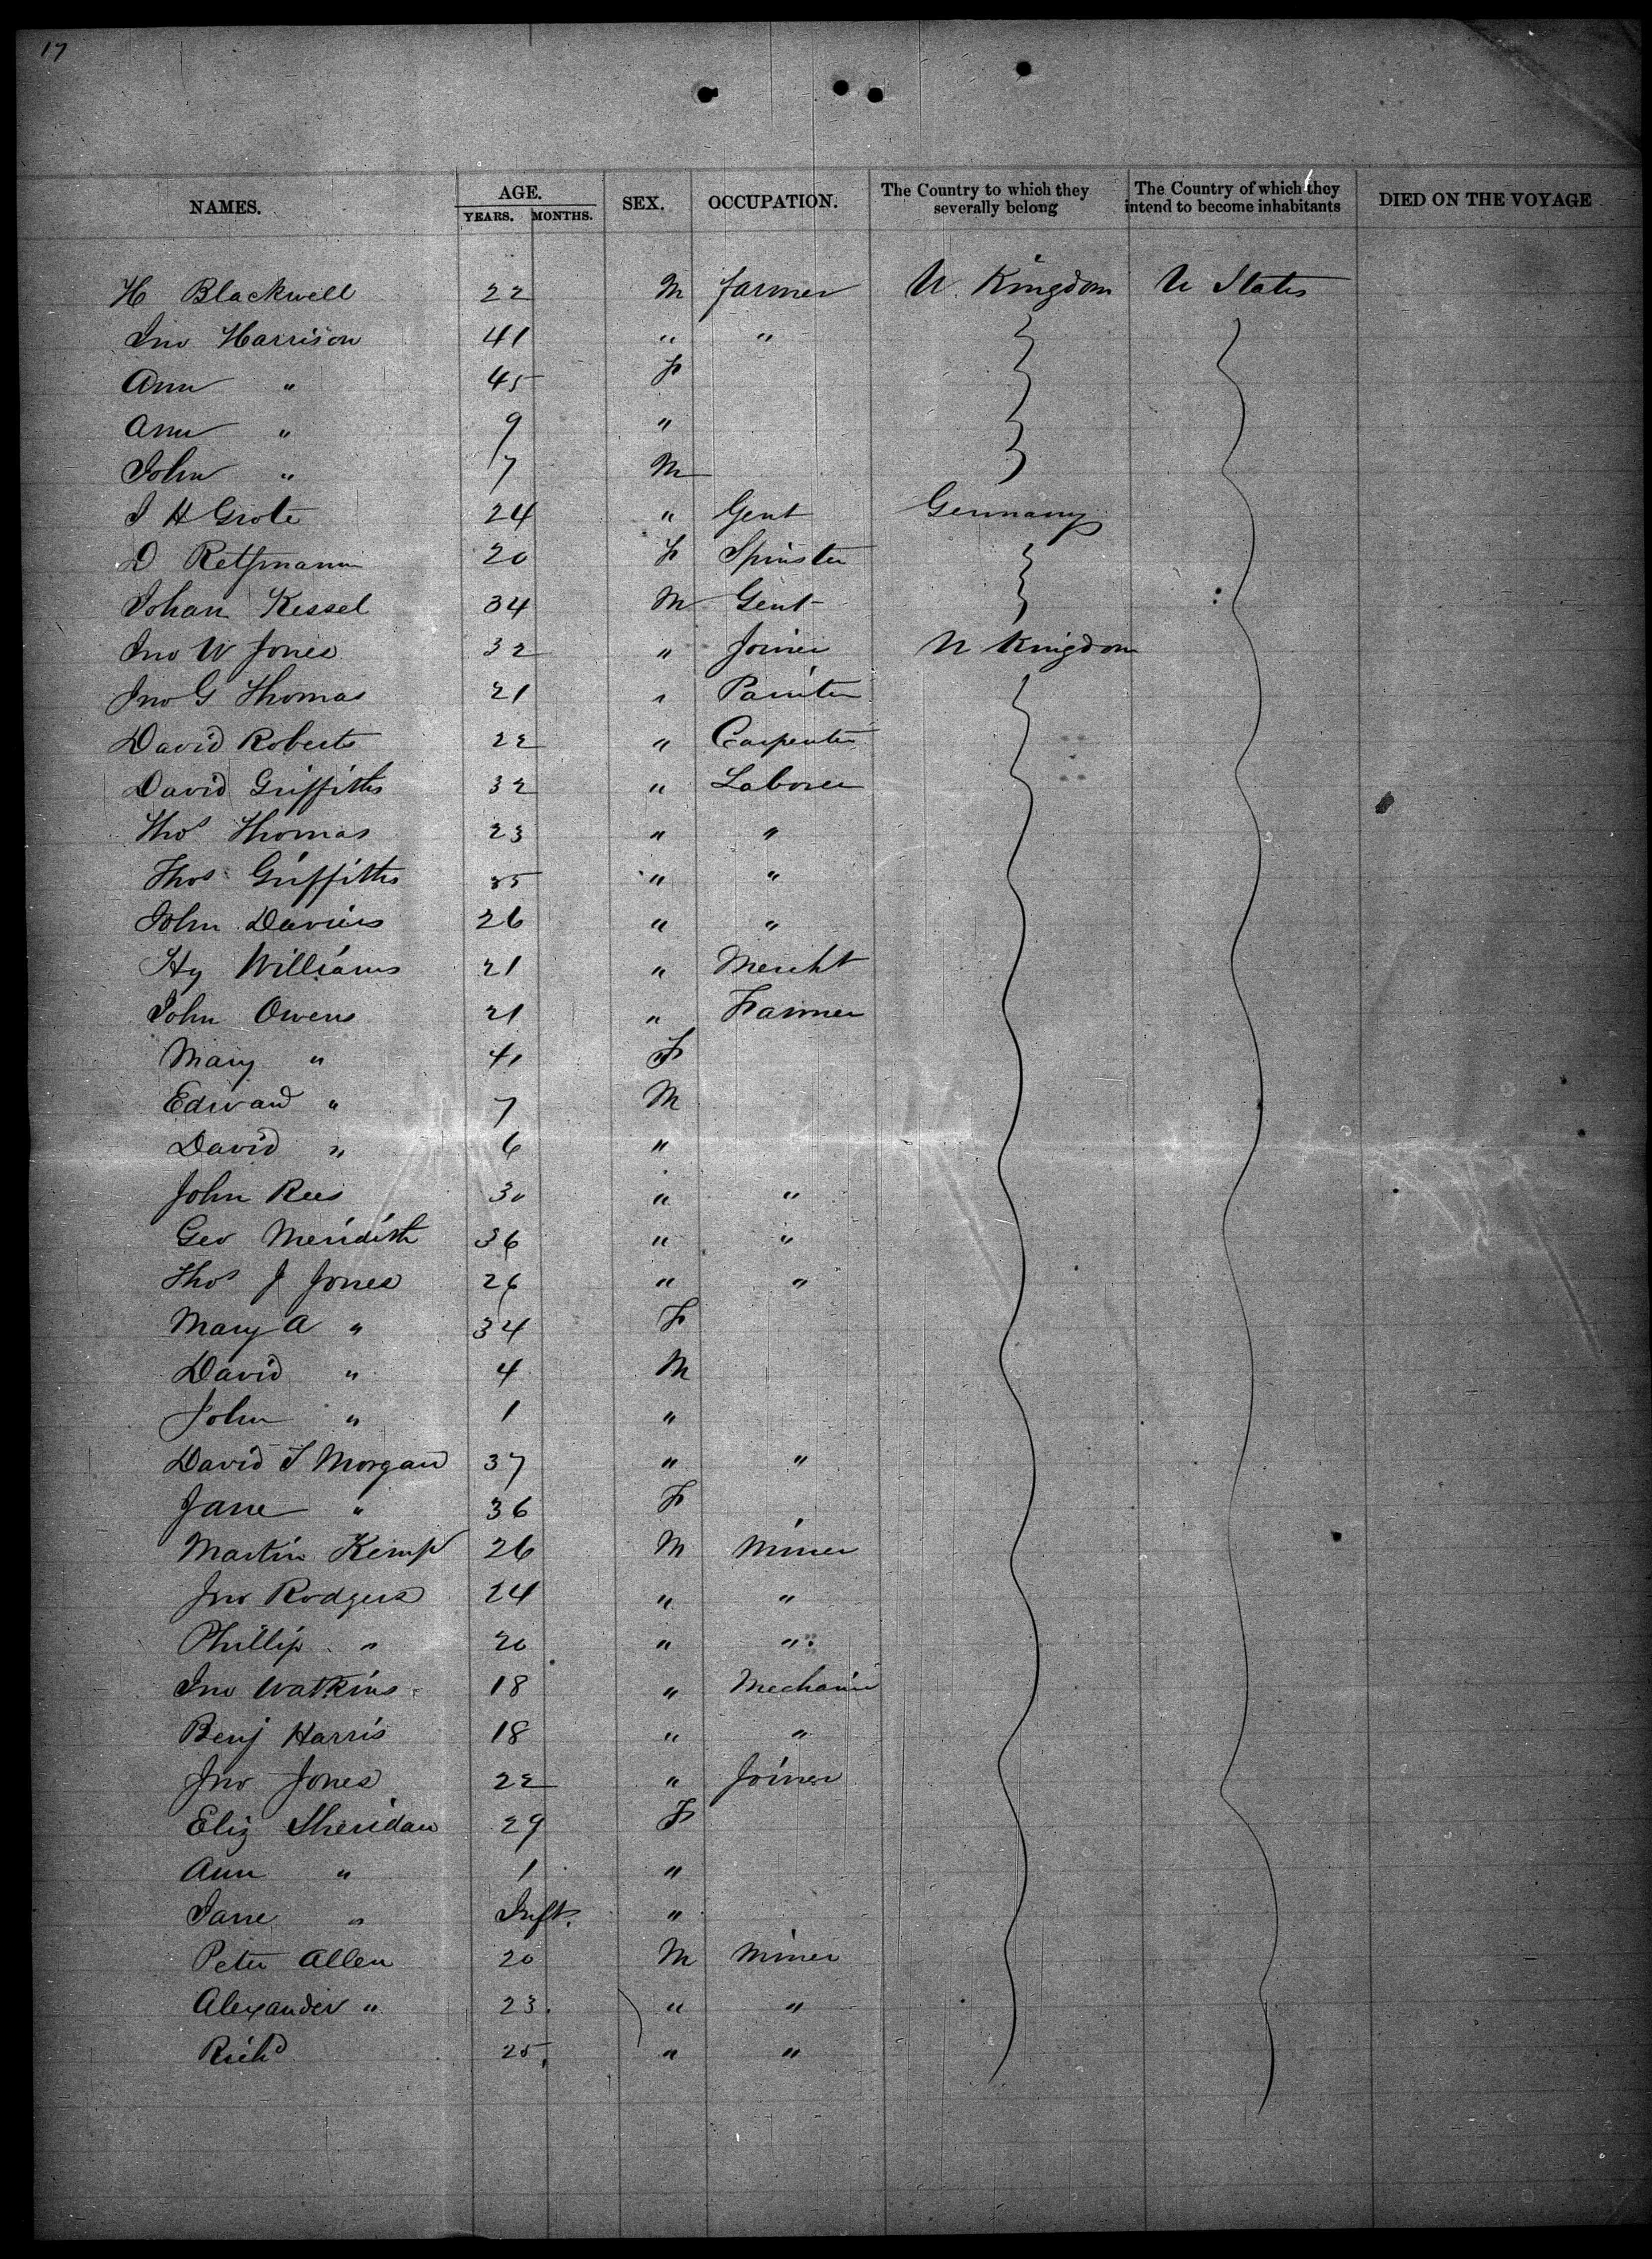 17
NAMES. AGE. YEARS. MONTHS. SEX. OCCUPATION. The Country to which they severally belong The Country of which they intend to become inhabitants DIED ON THE VOYAGE
H Blackwell 22 M farmer U. Kingdom U States
Jno Harrison 41 " "
Ann " 45 F
Ann " 9 "
John " 7 M
J H Grote 24 " Gent Germany
D 20 F Spinster
Johan Kessel 34 M Gent
Jno W Jones 32 " Joiner U Kingdom
Jno G Thomas 21 " Painter
David Roberts 22 " Carpenter
David Griffiths 32 " Laborer
Thos Thomas 23 " "
Thos Griffiths " "
John Davies 26 " "
Hy Williams 21 " Mercht
John Owens 21 " Farmer
Mary " 41 F
Edward " 7 M
David " 6 "
John Rees 30 " "
Geo Meridith 36 " "
Thos J Jones 26 " "
Mary A " 34 F
David " 4 M
John " 1 "
David T Morgan 37 " "
Jane " 36 F
Martin Kemp 26 M Miner
Jno Rodgers 24 " "
Phillip " 20 " "
Jno Watkins 18 " Mechanic
Benj Harris 18 " "
Jno Jones 22 " Joiner
Eliz Sheridan 29 F
Ann " 1 "
Jane " Inft. "
Peter Allen 20 M Miner
Alexander " 23. " "
Richd 25. " "